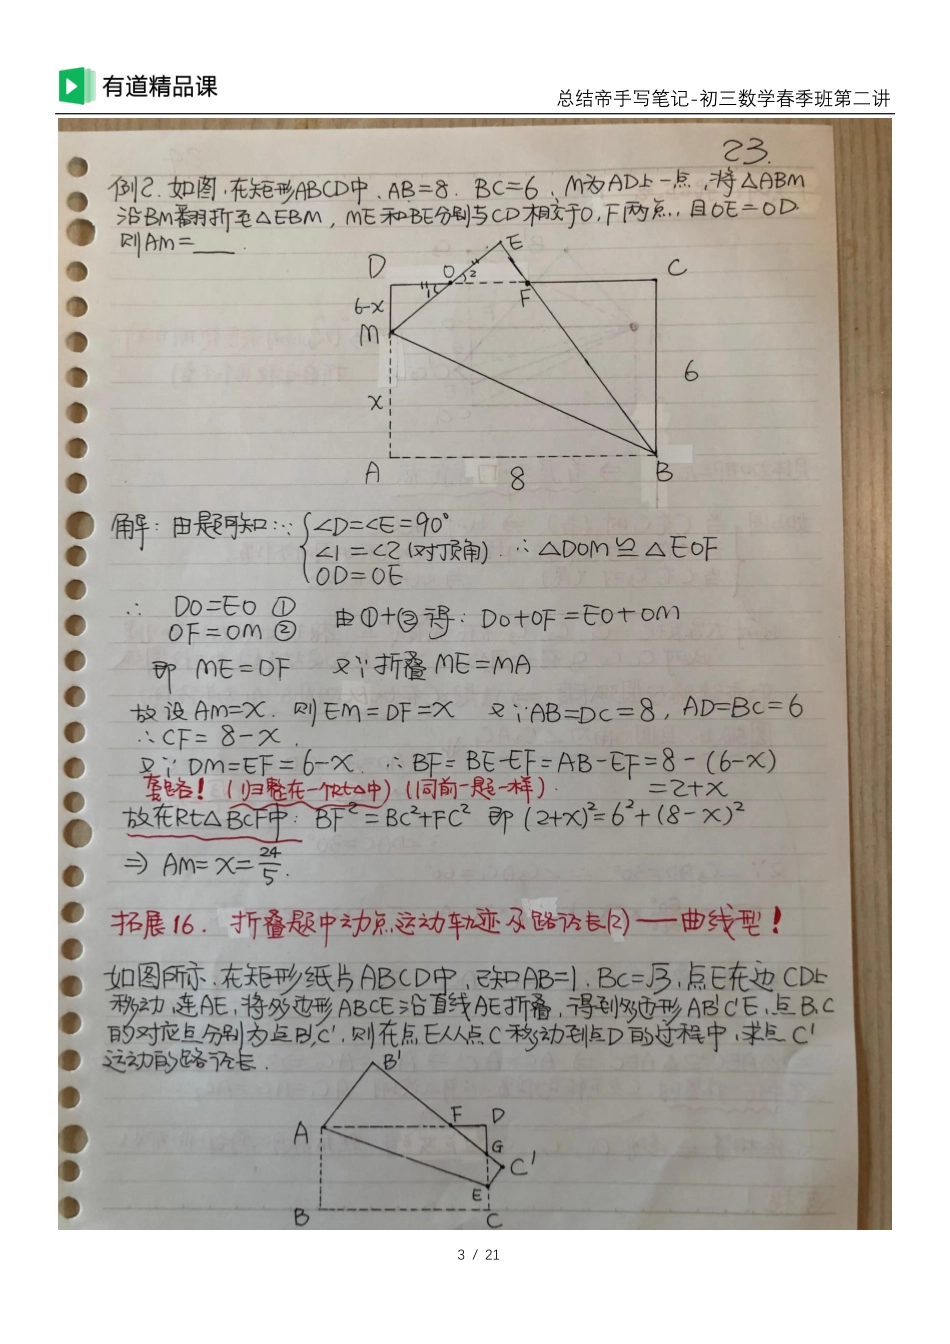 有道精品课
总结帝手写笔记-初三数学春季班第二讲
23.
例2.如图,在矩形ABCD中、AB=8. BC=6、M为AD上一点,将△ABM
沿BM翻折至△EBM, ME和BE分别与CD相交于O,F两点.,且OE=OD.
则AM=___.
E
D O 2 C
1 F
6-x
M
6
x
A 8 B
解:由题可知:∵ ∠D=∠E=90°
∠1=∠2(对顶角). ∴△DOM≌△EOF
OD=OE
∴ DO=EO ①
OF=OM ② 由①+②得: DO+OF=EO+OM
即 ME=DF 又∵折叠ME=MA
故设AM=x. 则EM=DF=x 又∵AB=DC=8, AD=BC=6
∴CF=8-x.
又∵DM=EF=6-x. ∴BF=BE-EF=AB-EF=8-(6-x)
套路!(归整在一个Rt△中)(同前一题一样). =2+x
故在Rt△BCF中: BF²=BC²+FC² 即 (2+x)²=6²+(8-x)²
⇒ AM=x=24/5.
拓展16. 折叠题中动点运动轨迹及路径长(2)——曲线型!
如图所示.在矩形纸片ABCD中,已知AB=1. BC=√3,点E在边CD上
移动,连AE,将多边形ABCE沿直线AE折叠,得到多边形AB'C'E,点B、C
的对应点分别为点B',C',则在点E从点C移动到点D的过程中,求点C'
运动的路径长.
B'
A F D
G
C'
E
B C
3 / 21